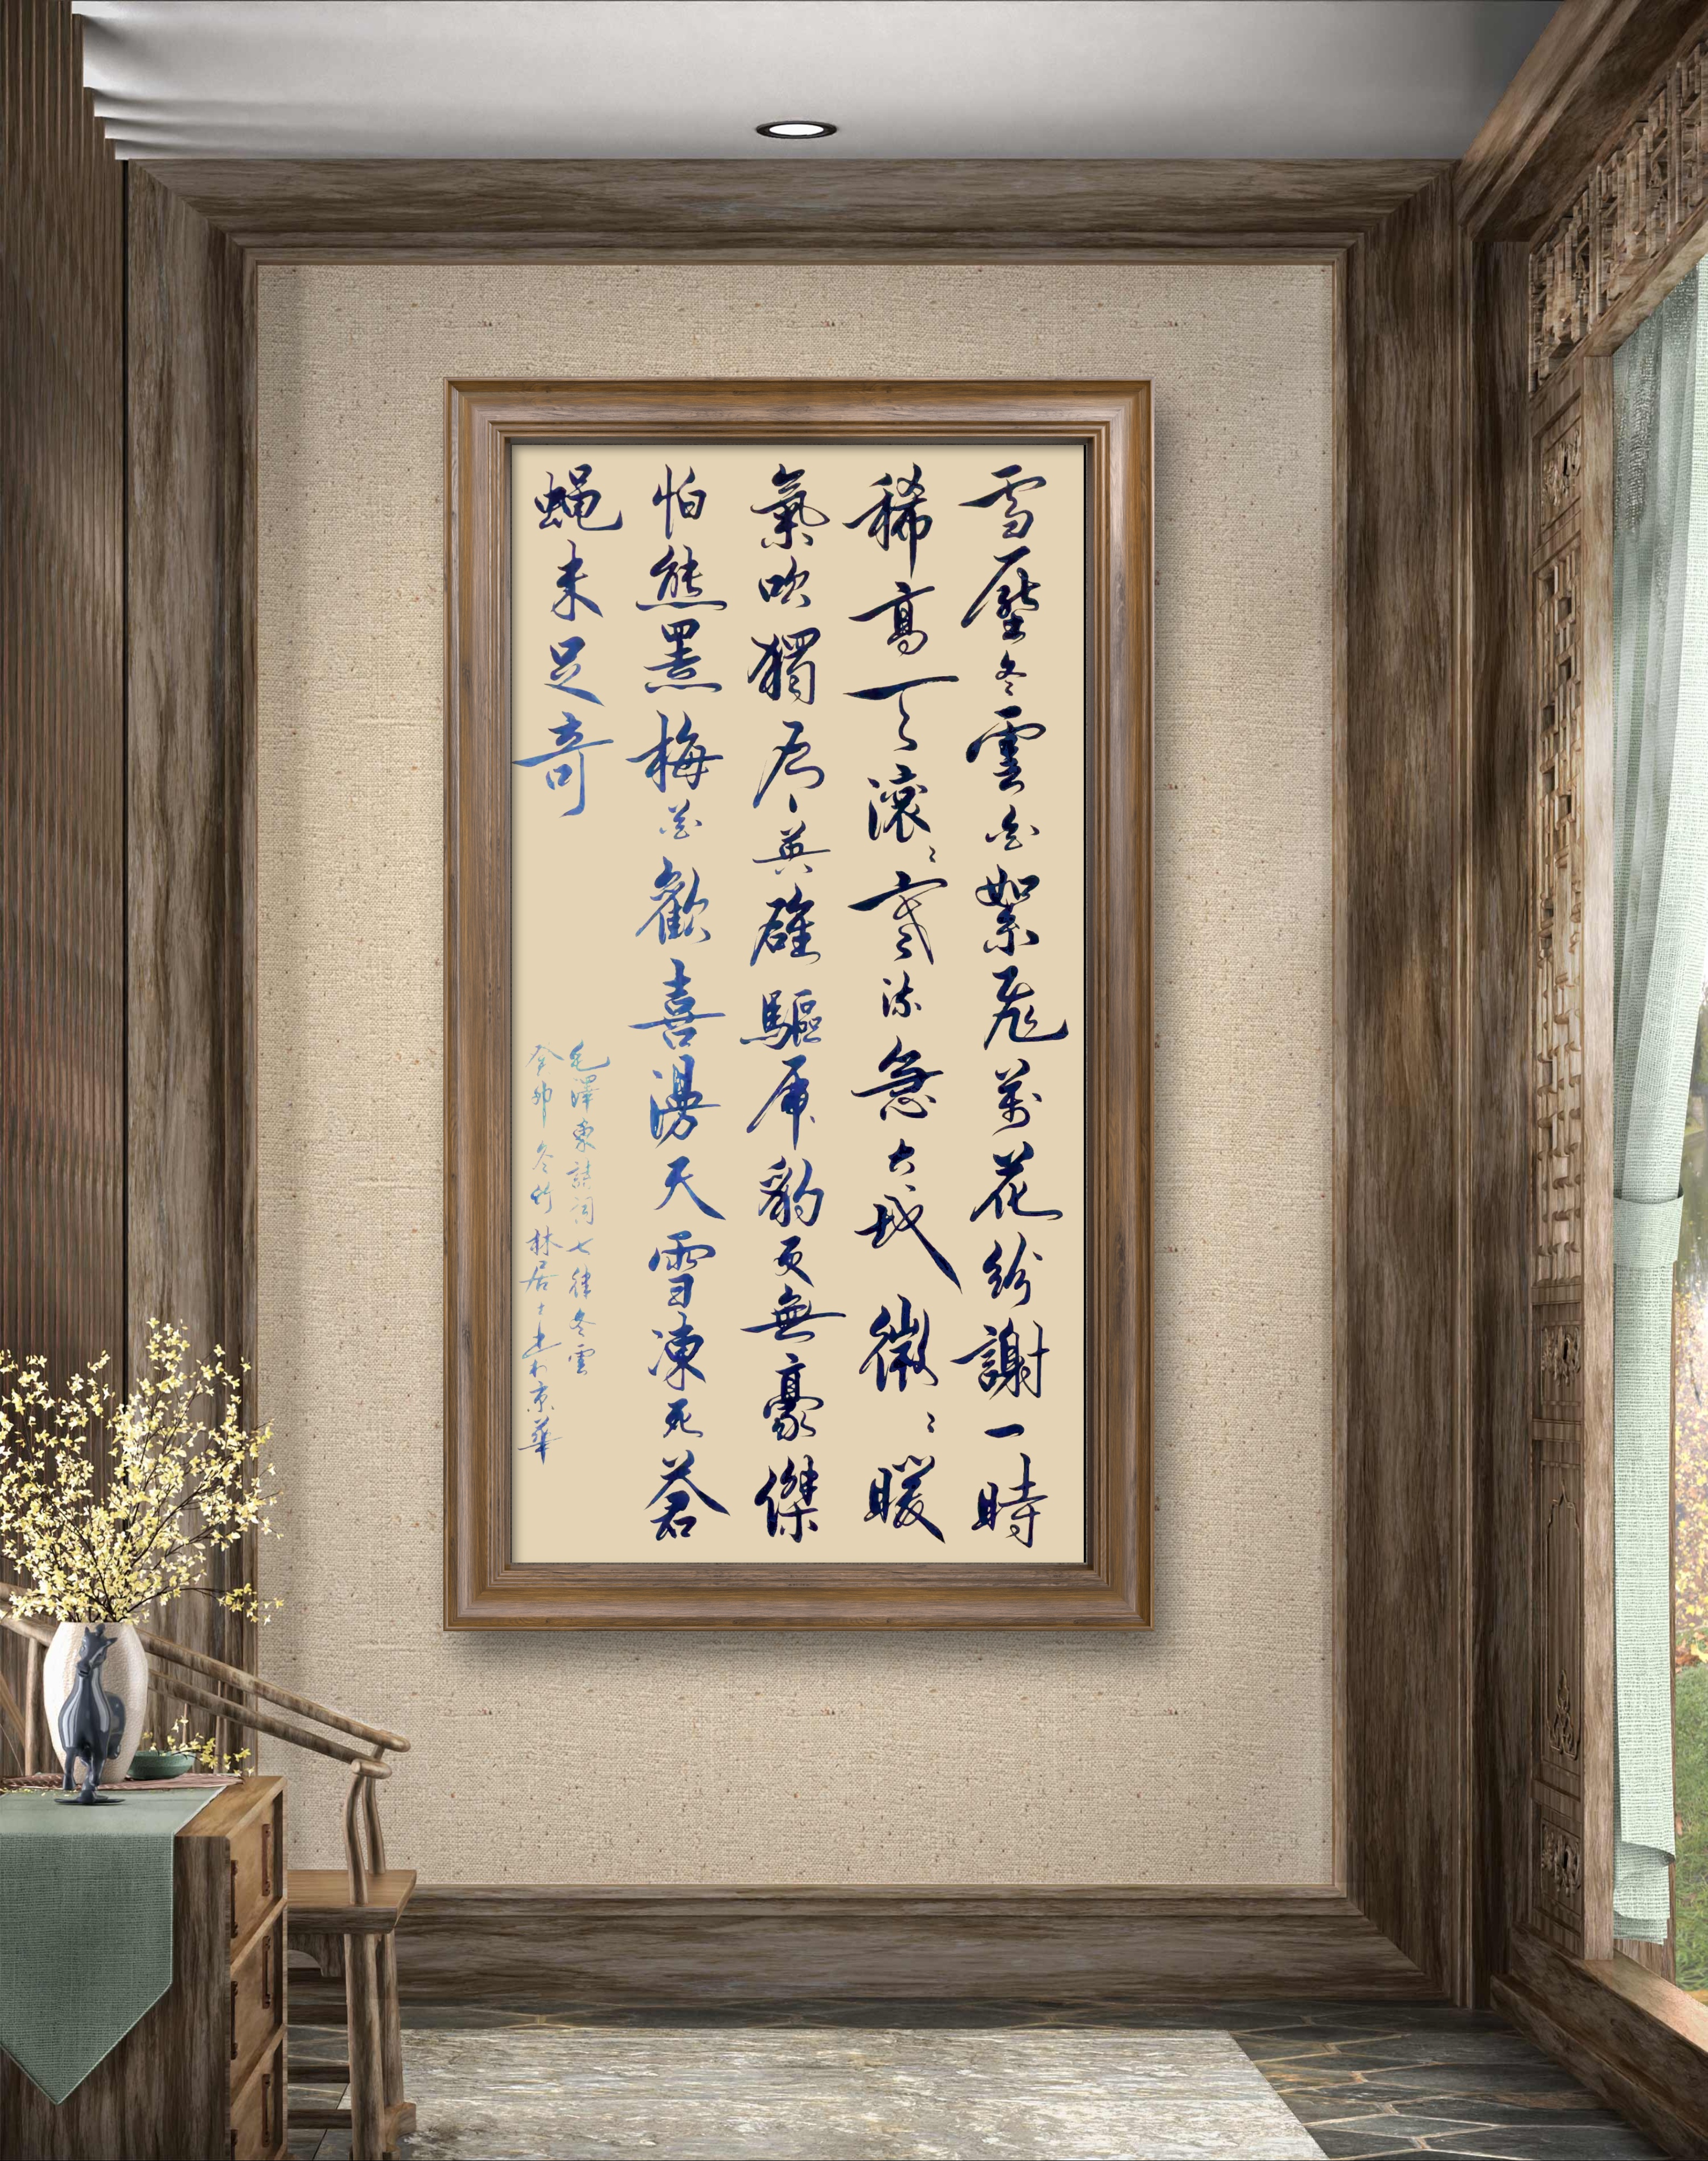 雪壓冬雲白絮飛萬花紛謝一時
稀高天滾〻寒流急大地微〻暖
氣吹獨有英雄驅虎豹更無豪傑
怕熊羆梅花歡喜漫天雪凍死蒼
蝇未足奇
毛澤東詩詞七律冬雲
癸卯冬竹林居士書於京華